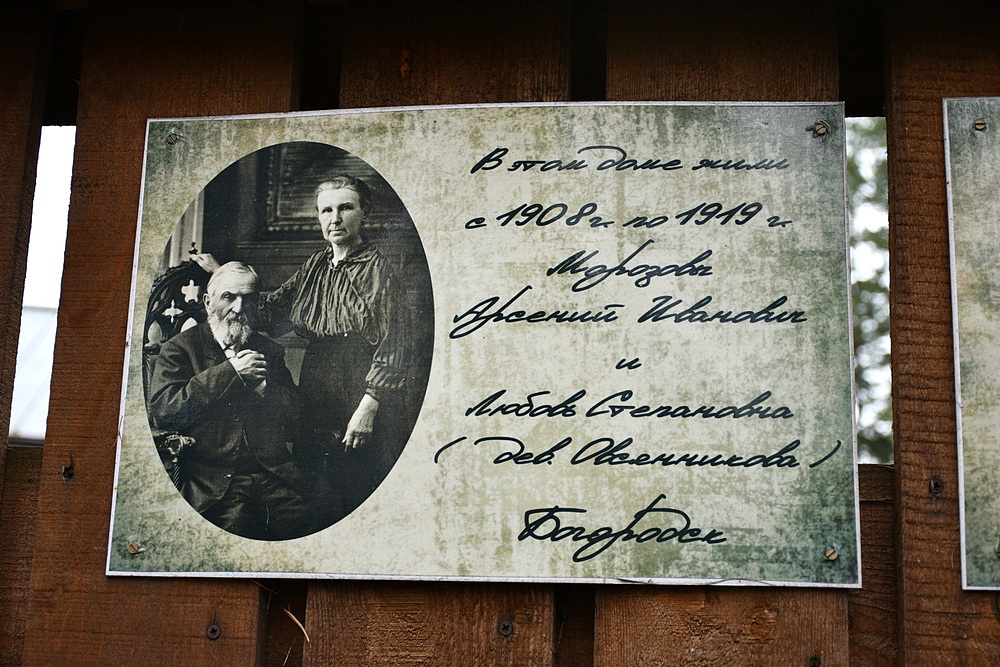 В этом доме жили
с 1908г. по 1919 г.
Морозовы
Арсений Иванович
и
Любовь Степановна
( дев. Овсянникова )
Богородск